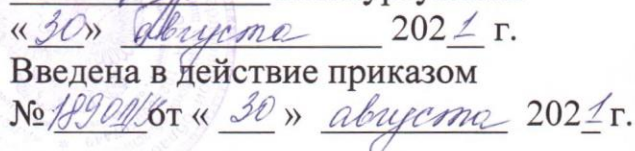 «30» августа 2021 г.
Введена в действие приказом
№ от « 30 » августа 2021 г.